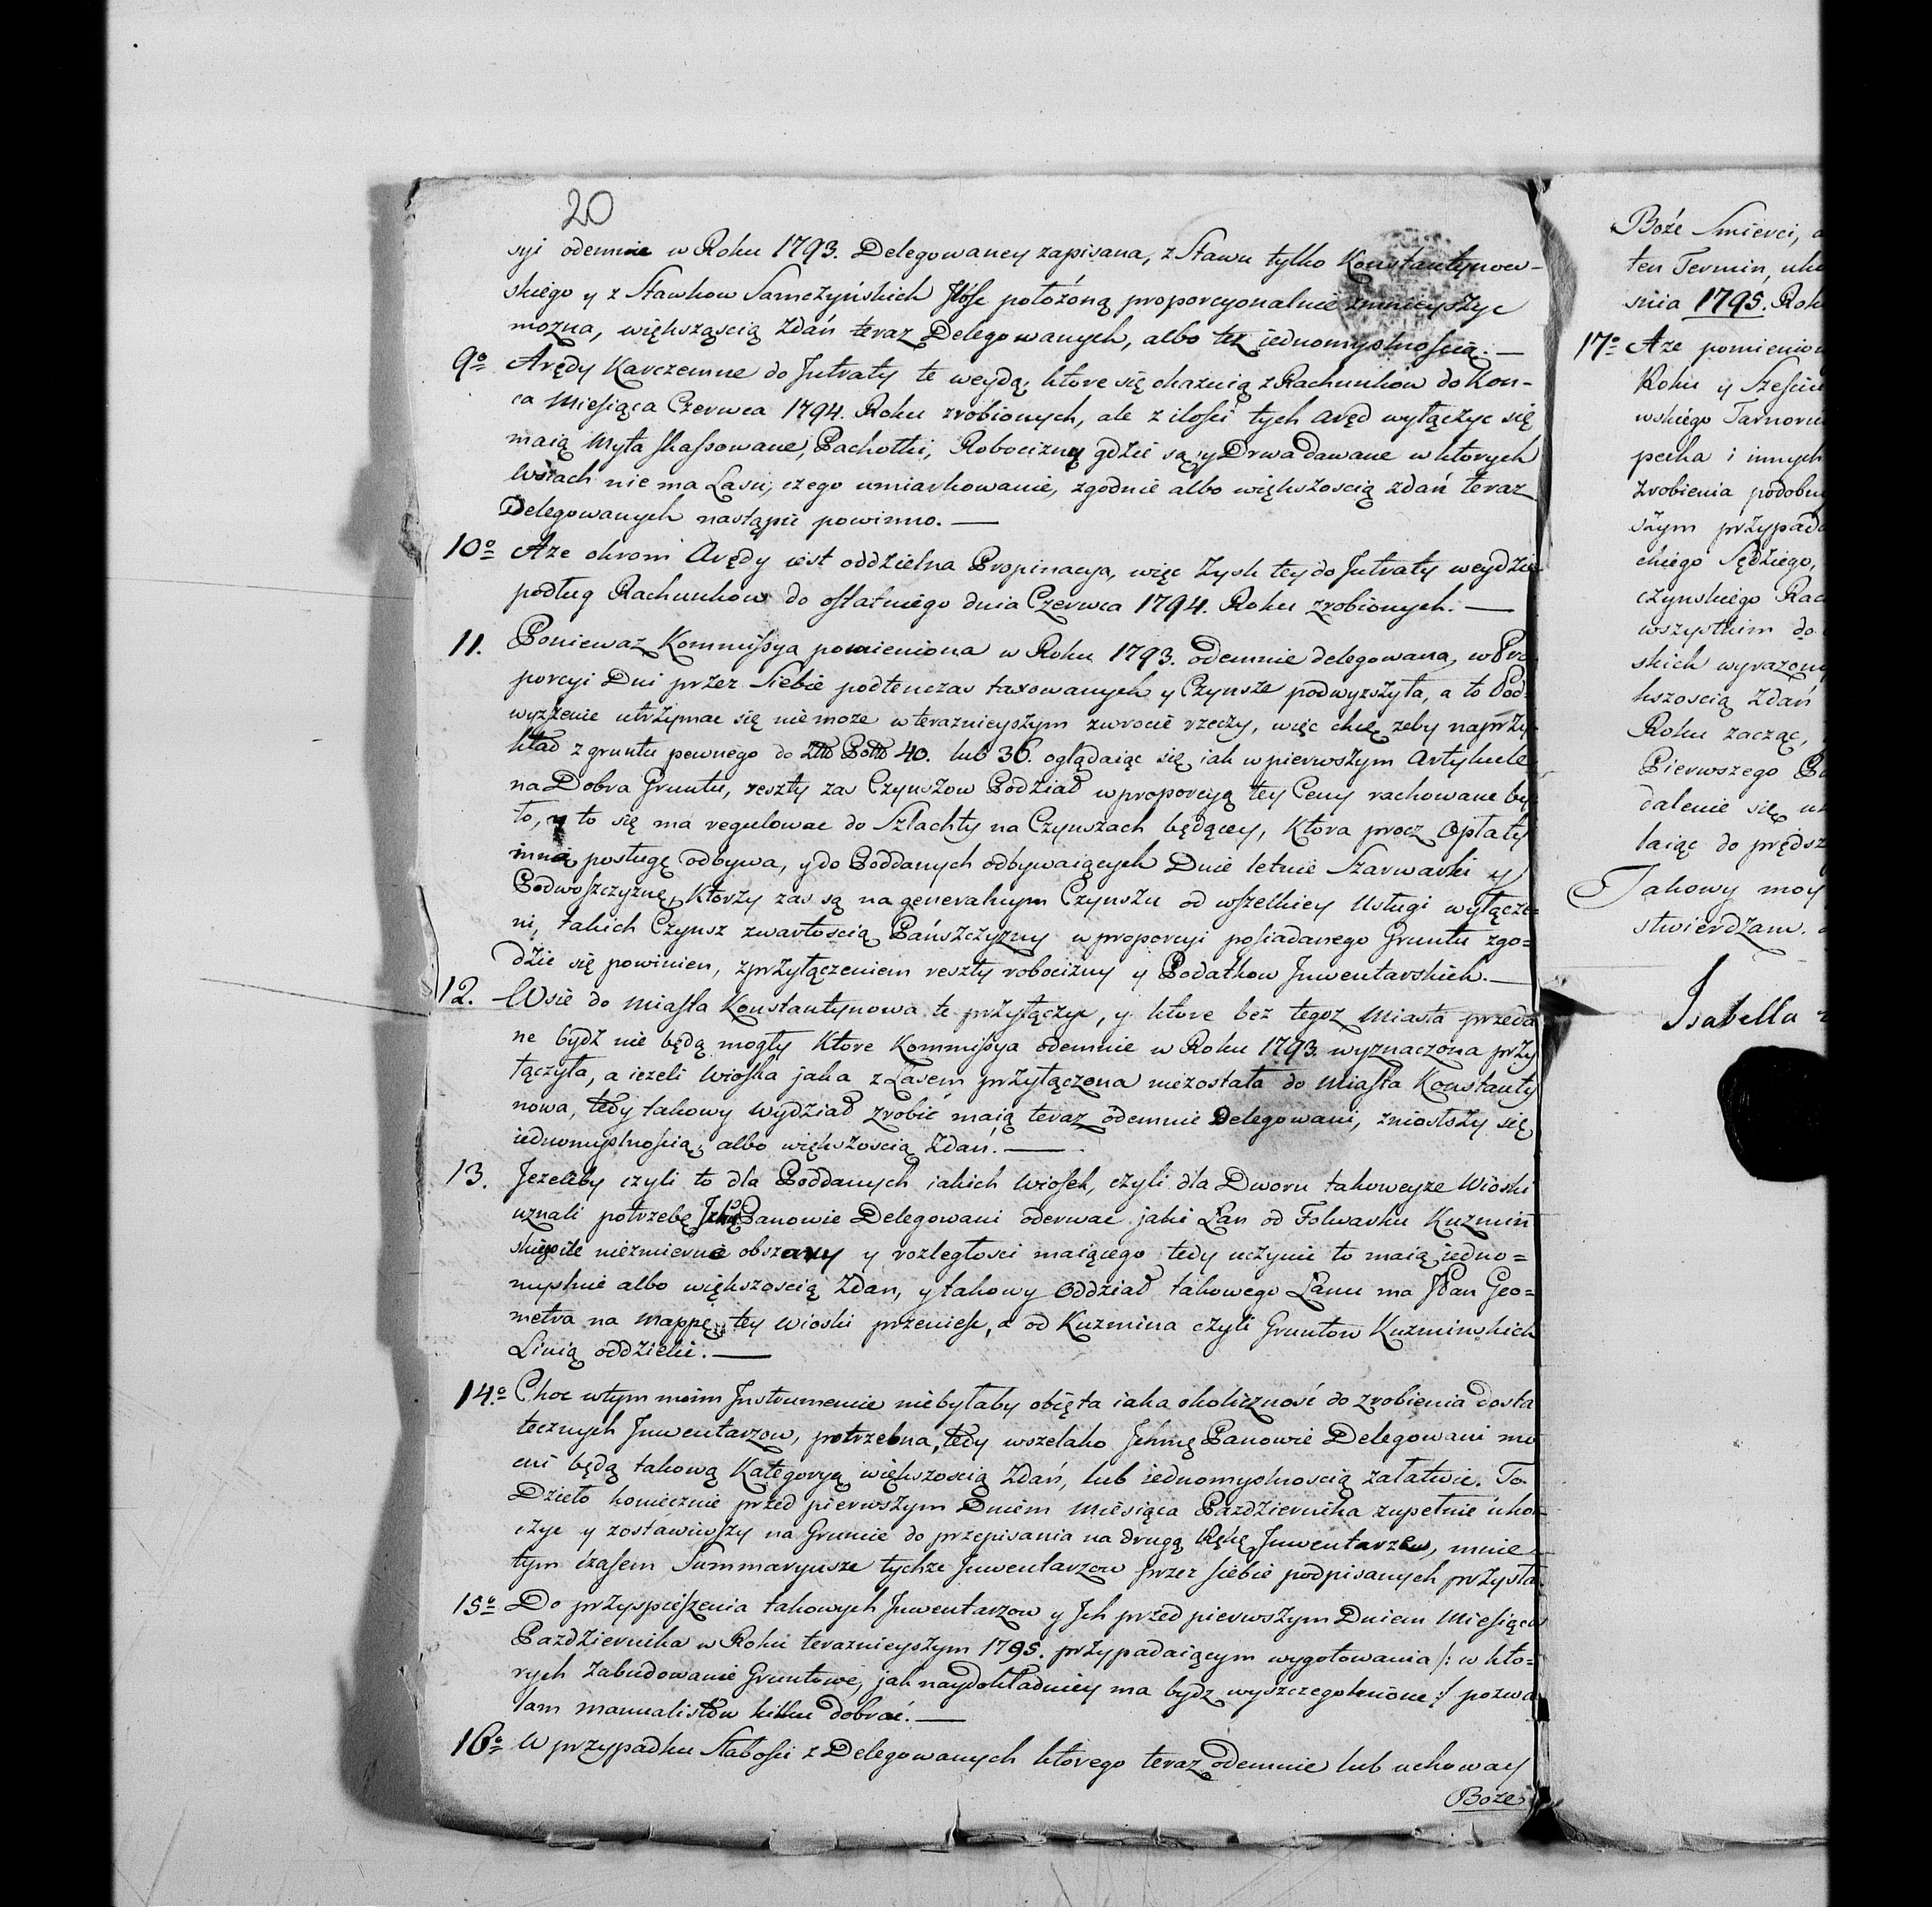 20
syi odemnie w Roku 1793. Delegowaney zapisana, z Stawu tylko Konstantynow-
skiego y z Stawkow Samczyńskich Ilość położoną proporcyonalnie zmnieyszyc
mozna, większąscią Zdań teraz Delegowanych, albo też iednomyslnością. —
9º Arędy Karczemne do Jutraty te weydą, ktore się okazuią z Rachunkow do Kon-
ca Miesiąca Czerwca 1794. Roku zrobionych, ale z ilości tych aręd wyłączyc się
maią Myta skassowane, Pachołki, Robociznę gdzie są y Drwa dawane w ktorych
Wsiach nie ma Lasu, czego umiarkowanie, zgodnie albo większoscią zdań teraz
Delegowanych nastąpic powinno. —
10º A ze okrom Arędy iest oddzielna Propinacya, więc Zysk tey do Jutraty weydzie
podług Rachunkow do ostatniego dnia Czerwca 1794. Roku zrobionych. —
11. Poniewaz Kommissya pomieniona w Roku 1793. odemnie delegowana, w Pro
porcyi Dni przez Siebie podtenczas taxowanych y Czynsze podwyzszyła, a to Pod-
wyzżenie utrzymac się niemoze w teraznieyszym zwrocie rzeczy, więc chcę zeby naprzy-
kład z gruntu pewnego do Złło Polło 40. lub 36. oglądaiąc się iak w pierwszym Artykule
na Dobra Gruntu, reszty zas Czynszow Podział w proporcyą tey Ceny rachowane by
to, y to się ma regulowac do Szlachty na Czynszach będącey, Ktora procz Opłaty
inną posługę odbywa, y do Poddanych odbywaiących Dnie letnie Szarwarki y
Podwoszczyznę, Ktorzy zas są na generalnym Czynszu od wszelkiey Usługi wyłącze=
ni, takich Czynsz zwartoscią Pańszczyzny w proporcyi posiadanego Gruntu zgo=
dzic się powinien, z przyłączeniem reszty robocizny y Podatkow Inwentarskich. —
12. Wsie do Miasta Konstantynowa te przyłączyc, y ktore bez tegoz Miasta przeda
ne bydź nie będą mogły Ktore Kommissya odemnie w Roku 1793. wyznaczona przy
łączyła, a iezeli Wioska jaka z Lasem przyłączona niezostała do Miasta Konstanty
nowa, tedy takowy Wydział zrobić maią teraz odemnie Delegowani, zniosłszy się
iednomyslnością, albo większoscią Zdań. —
13. Jezeliby czyli to dla Poddanych iakich Wiosek, czyli dla Dworu takoweyze Wioski
uznali potrzebę Panowie Delegowani oderwac jaki Łan od Folwarku Kuzmiń
skiego ile niezmierne obszary y rozległosci maiącego tedy uczynic to maią iedno=
myslnie albo większoscią Zdan, y takowy Oddział takowego Łanu ma JPan Geo=
metra na Mappę tey Wioski przeniesc, a od Kuzmina czyli Gruntow Kuzminskich
Linią oddzielic. —
14º Choc w tym moim Instrumencie niebyłaby obięta iaka okoliczność do zrobienia dosta
tecznych Inwentarzow, potrzebna, tedy wszelako Jchmć Panowie Delegowani mo
cni będą takową Kategoryą większoscią Zdań, lub iednomyslnoscią załatwic. To
Dzieło koniecznie przed pierwszym Dniem Miesiąca Pazdziernika zupełnie ukon
czyc y zostawiwszy na Gruncie do przepisania na drugą Rękę Inwentarzow, mnie
tym czasem Summaryusze tychze Inwentarzow przez siebie podpisanych przysła
15º Do przyspieszenia takowych Inwentarzow y Jch przed pierwszym Dniem Miesiąca
Pazdziernika w Roku teraznieyszym 1795. przypadaiącym wygotowania /: w kto=
rych Zabudowanie Gruntowe, jak naydokładniey ma bydz wyszczegolnione :/ pozwa
lam manualistow kilku dobrać. —
16º W przypadku Słabości z Delegowanych ktorego teraz odemnie lub uchoway
Boze
Boże Smierci, a
ten Termin, uko
snia 1795. Rok
17º A ze pomienion
Roku y Szescie
wskiego Tarnow
pecha i innych
Zrobienia podobny
szym przypad
ckiego Sędziego,
czynskiego Rac
wszystkim do
skich wyrazon
kszoscią Zdań
Roku zacząc,
Pierwszego
dalenie się
laiąc do prędsz
Takowy moy
stwierdzam.
Isabella